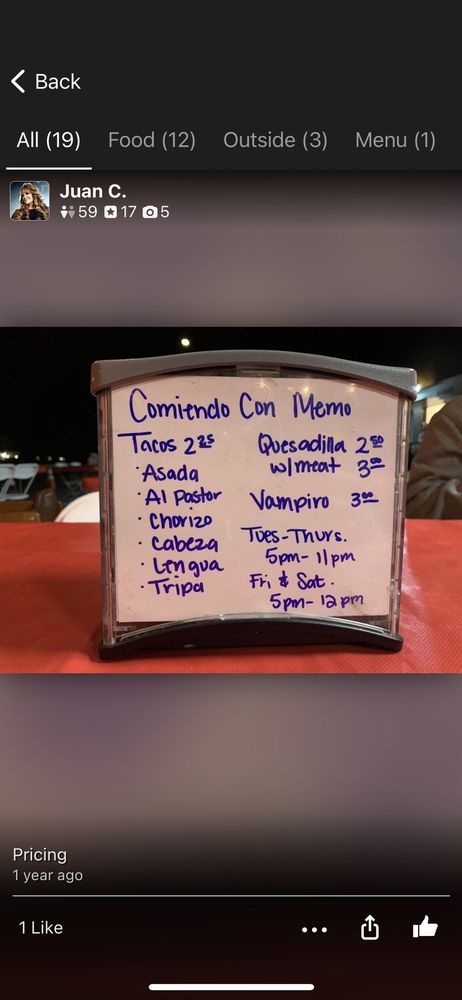 Back
All (19) Food (12) Outside (3) Menu (1)
Juan C.
59 17 5
Comiendo Con Memo
Tacos 2 25
· Asada
· Al Pastor
· Chorizo
· Cabeza
· Lengua
· Tripa
Quesadilla 2 50
w/meat 3 00
Vampiro 3 00
Tues-Thurs.
5pm-11pm
Fri & Sat.
5pm-12pm
Pricing
1 year ago
1 Like